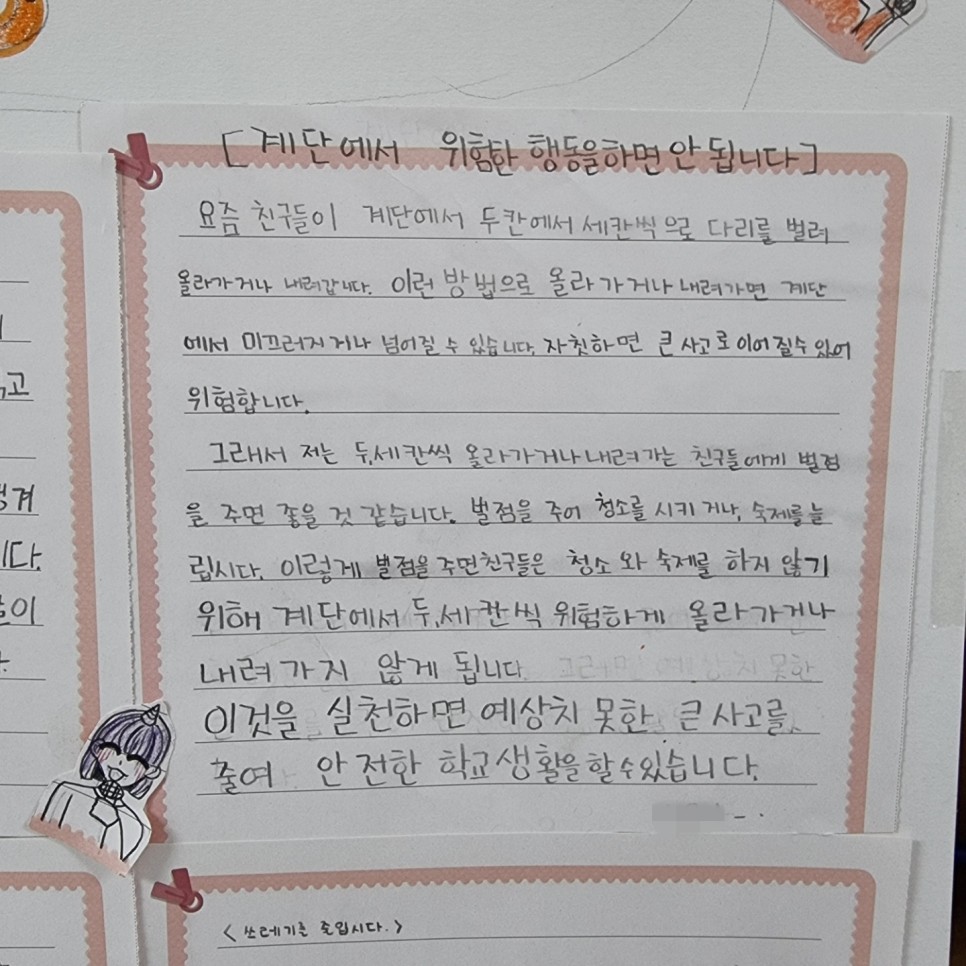 [계단에서 위험한 행동을하면 안 됩니다]
요즘 친구들이 계단에서 두칸에서 세칸씩으로 다리를 벌려
올라가거나 내려갑니다. 이런 방법으로 올라가거나 내려가면 계단
에서 미끄러지거나 넘어질 수 있습니다. 자칫하면 큰 사고로 이어질수 있어
위험합니다.
그래서 저는 두,세칸씩 올라가거나 내려가는 친구들에게 벌점
을 주면 좋을 것 같습니다. 벌점을 주어 청소를 시키거나, 숙제를 늘
립시다. 이렇게 벌점을 주면 친구들은 청소와 숙제를 하지 않기
위해 계단에서 두,세칸씩 위험하게 올라가거나
내려가지 않게 됩니다.
이것을 실천하면 예상치 못한 큰 사고를
줄여 안전한 학교생활을 할수 있습니다.
<쓰레기를 줍시다.>